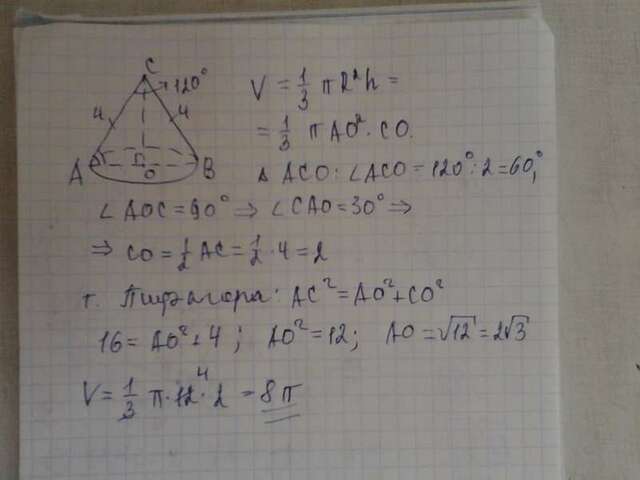 C
120°
4 4
A O B
V = 1/3 πR²h =
= 1/3 πAO²·CO.
Δ ACO: ∠ACO = 120°:2 = 60°,
∠AOC = 90° ⇒ ∠CAO = 30° ⇒
⇒ CO = 1/2 AC = 1/2 · 4 = 2
т. Пифагора: AC² = AO² + CO²
16 = AO² + 4; AO² = 12; AO = √12 = 2√3
4
V = 1/3 π·12·2 = 8π